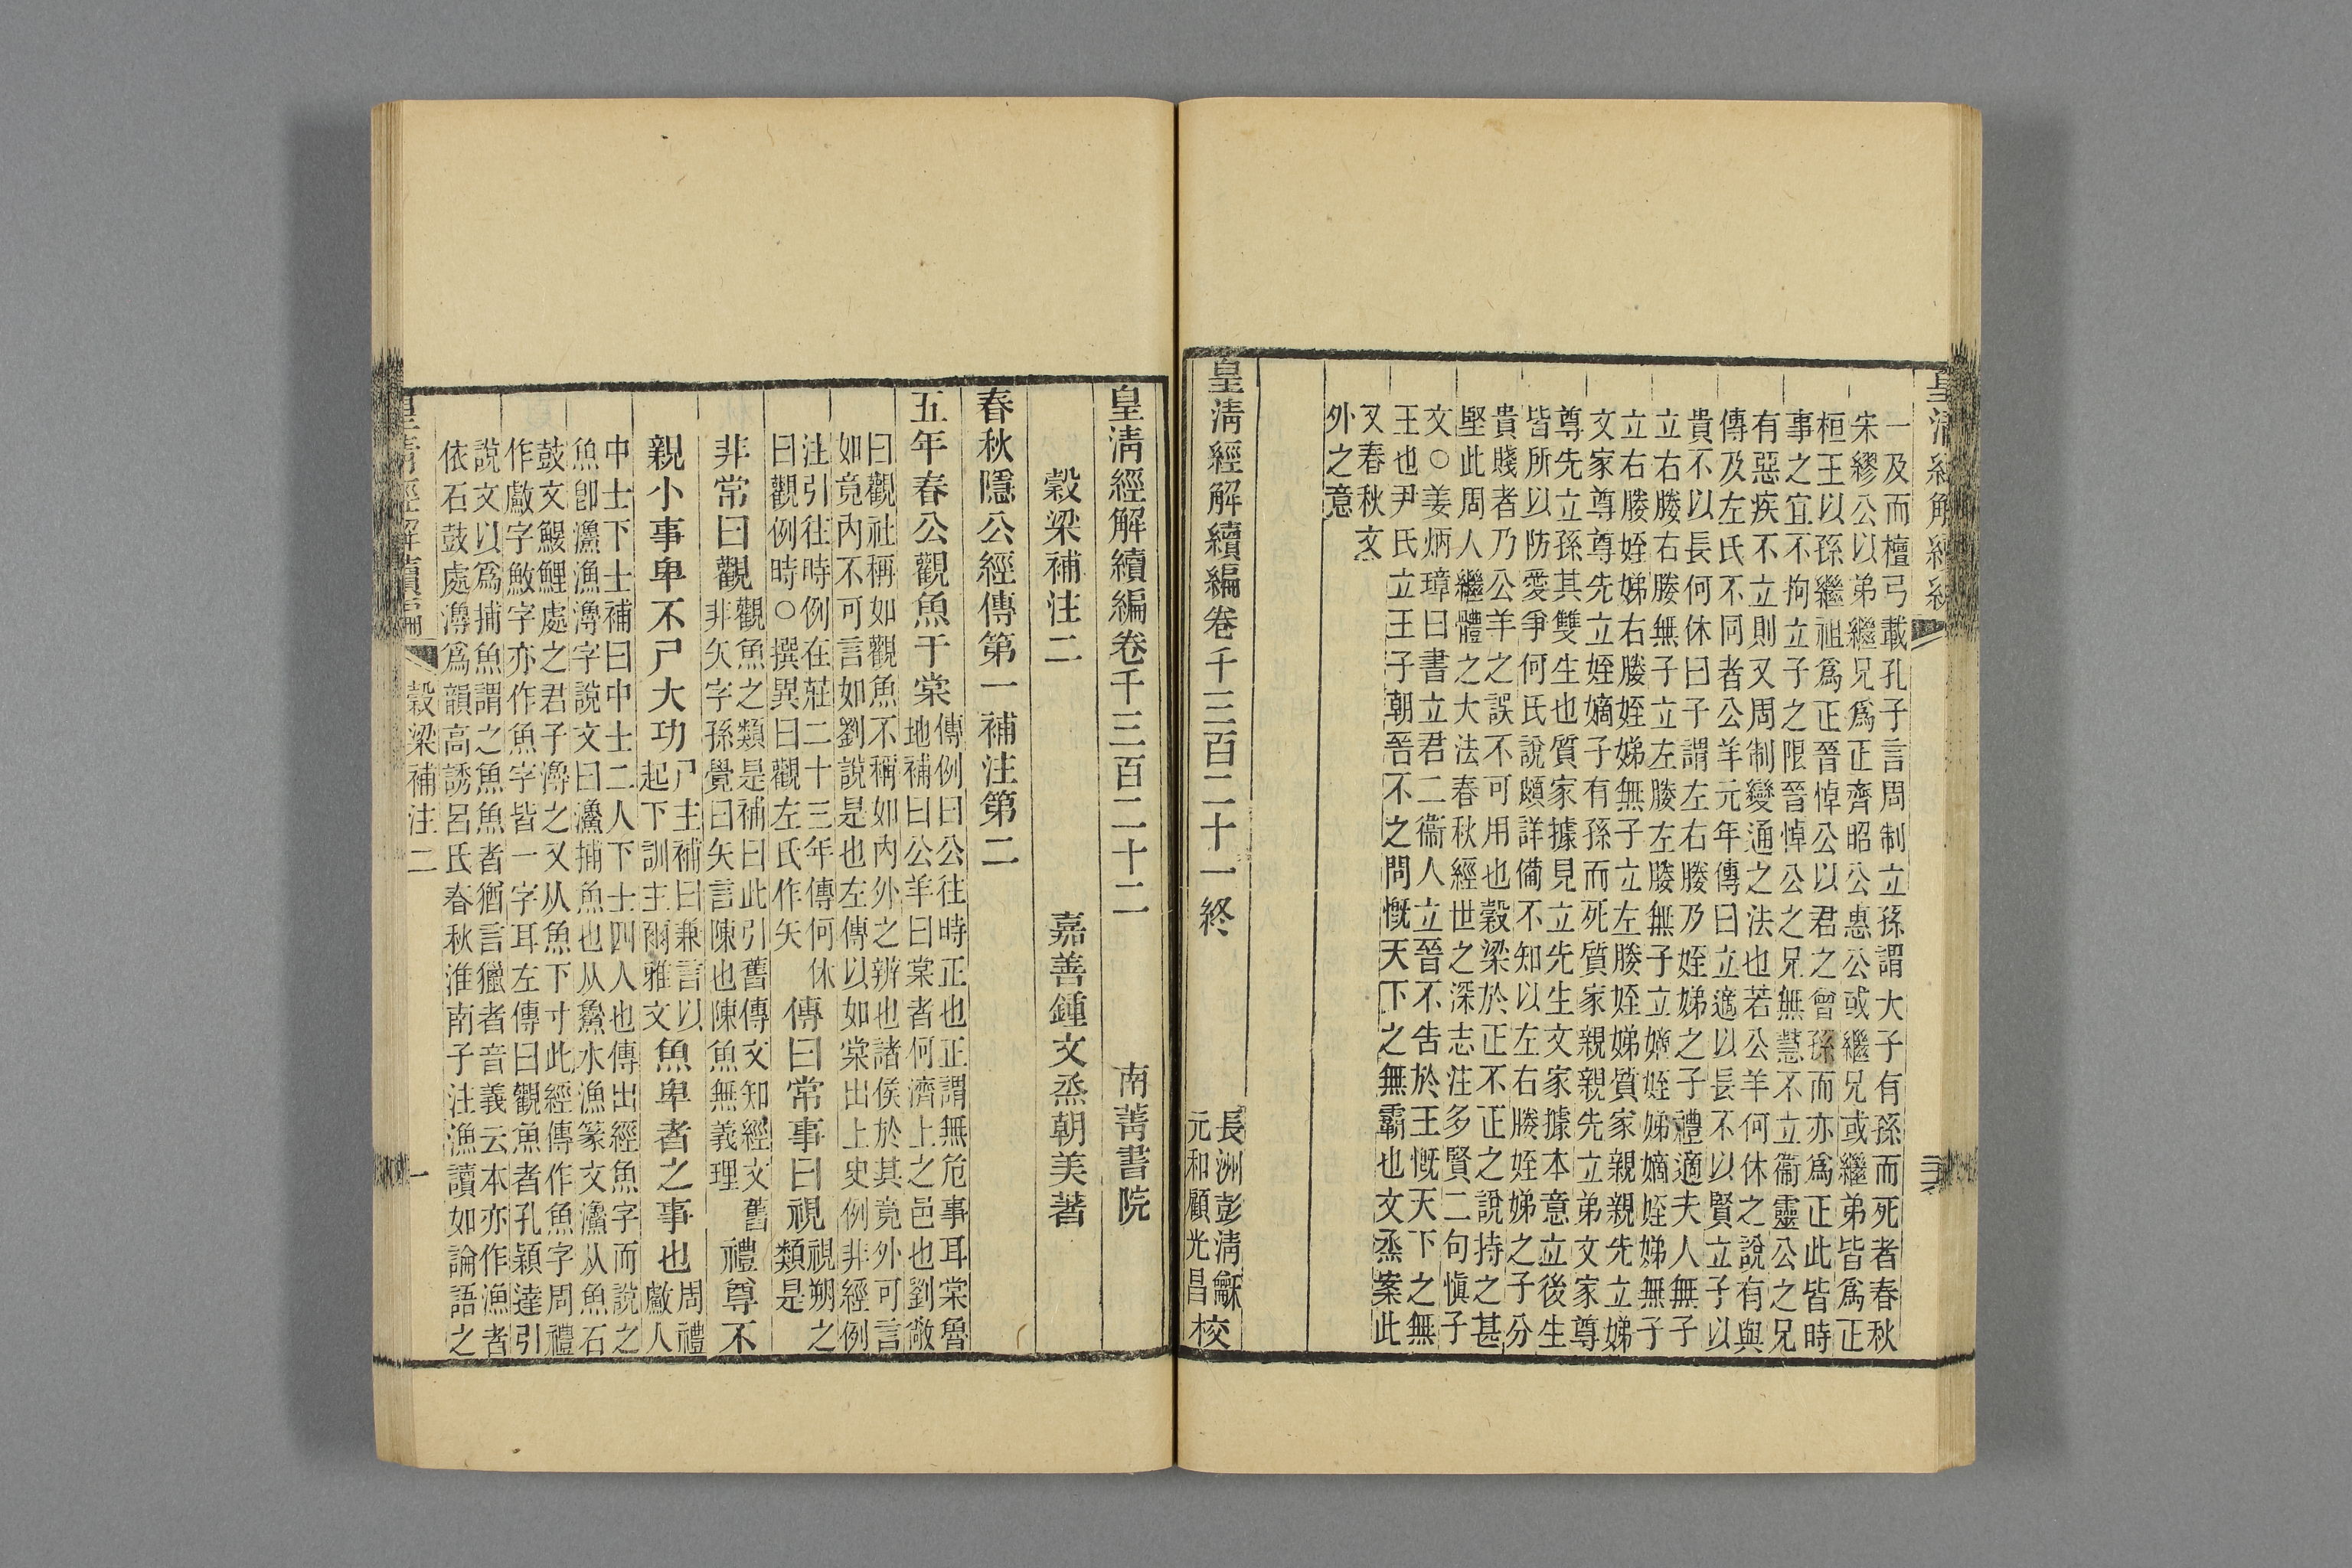 皇清經解續編
一及而檀弓載孔子言周制立孫謂大子有孫而死者春秋
宋繆公以弟繼兄爲正齊昭公惠公或繼兄或繼弟皆爲正
桓王以孫繼祖爲正晉悼公以君之曾孫而亦爲正此皆時
事之宜不拘立子之限晉悼公之兄無慧不立衞靈公之兄
有惡疾不立則又周制變通之法也若公羊何休之說有與
傳及左氏不同者公羊元年傳曰立適以長不以賢立子以
貴不以長何休曰子謂左右媵乃姪娣之子禮適夫人無子
立右媵右媵無子立左媵左媵無子立嫡姪娣嫡姪娣無子
立右媵姪娣右媵姪娣無子立左媵姪娣質家親親先立娣
文家尊尊先立姪嫡子有孫而死質家親親先立弟文家尊
尊先立孫其雙生也質家據見立先生文家據本意立後生
皆所以防愛爭何氏說頗詳備不知以左右媵姪娣之子分
貴賤者乃公羊之誤不可用也穀梁於正不正之說持之甚
堅此周人繼體之大法春秋經世之深志注多賢二句愼子
文○姜炳璋曰書立君二衞人立晉不告於王慨天下之無
王也尹氏立王子朝吾不之問慨天下之無霸也文烝案此
又春秋文
外之意
皇淸經解續編卷千三百二十一終
長洲彭淸龢
元和顧光昌校
皇淸經解續編卷千三百二十二
南菁書院
穀梁補注二
嘉善鍾文烝朝美著
春秋隱公經傳第一補注第二
五年春公觀魚于棠
傳例曰公往時正也正謂無危事耳棠魯
地補曰公羊曰棠者何濟上之邑也劉敞
曰觀社稱如觀魚不稱如內外之辨也諸侯於其竟外可言
如竟內不可言如劉說是也左傳以如棠出上史例非經例
注引往時例在莊二十三年傳何休
曰觀例時○撰異曰觀左氏作矢
傳曰常事曰視
視朔之
類是
非常曰觀
觀魚之類是補曰此引舊傳文知經文舊
非矢字孫覺曰矢言陳也陳魚無義理
禮尊不
親小事卑不尸大功
尸主補曰兼言以
起下訓主爾雅文
魚卑者之事也
周禮
䱷人
中士下士補曰中士二人下士四人也傳出經魚字而說之
魚卽漁字說文曰捕魚也从水漁篆文从魚石
鼓文鰋鯉處之君子之又从魚下寸此經傳作魚字周禮
作䱷字字亦作魚字皆一字耳左傳曰觀魚者孔穎達引
說文以爲捕魚謂之魚魚者猶言獵者音義云本亦作漁者
依石鼓處爲韻高誘呂氏春秋淮南子注漁讀如論語之
皇淸經解續編
穀梁補注二
一